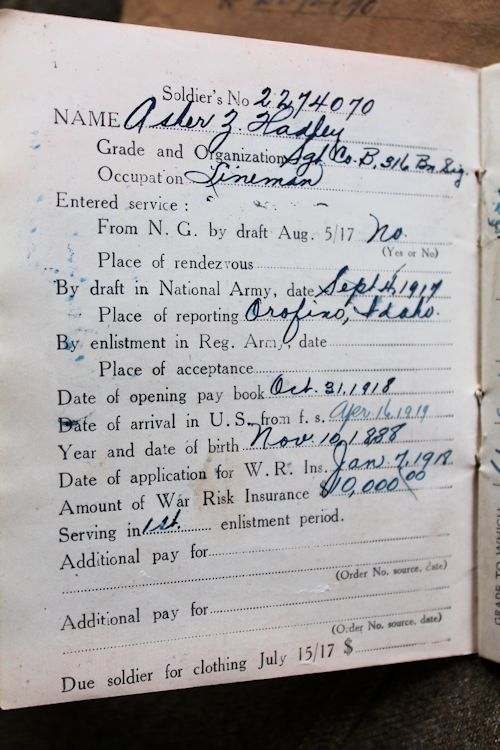 Soldier's No 2274070
NAME Asher Z. Hadley
Grade and Organization Sgt Co. B. 316 Bn Sig.
Occupation Lineman
Entered service:
From N. G. by draft Aug. 5/17 No.
(Yes or No)
Place of rendezvous
By draft in National Army, date Sept 4, 1917
Place of reporting Orofino, Idaho.
By enlistment in Reg. Army, date
Place of acceptance
Date of opening pay book Oct. 31, 1918
Date of arrival in U. S. from f. s. Apr 16, 1919
Year and date of birth Nov. 10, 1888
Date of application for W. R. Ins. Jan 7, 1918
Amount of War Risk Insurance $10,000.00
Serving in 1st. enlistment period.
Additional pay for
(Order No. source, date)
Additional pay for
(Order No. source, date)
Due soldier for clothing July 15/17 $